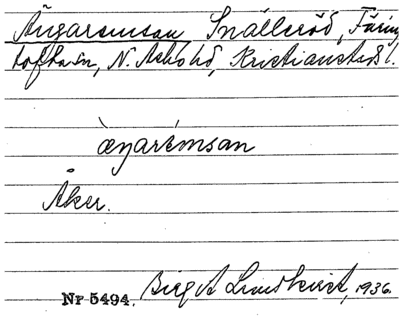 Ängaremsan Snälleröd, Färing
tofta sn, N. Åsbo hd, Kristianstads l.
àŋarémsan
Åker.
Nr 5494. Birgit Lindkvist, 1936.